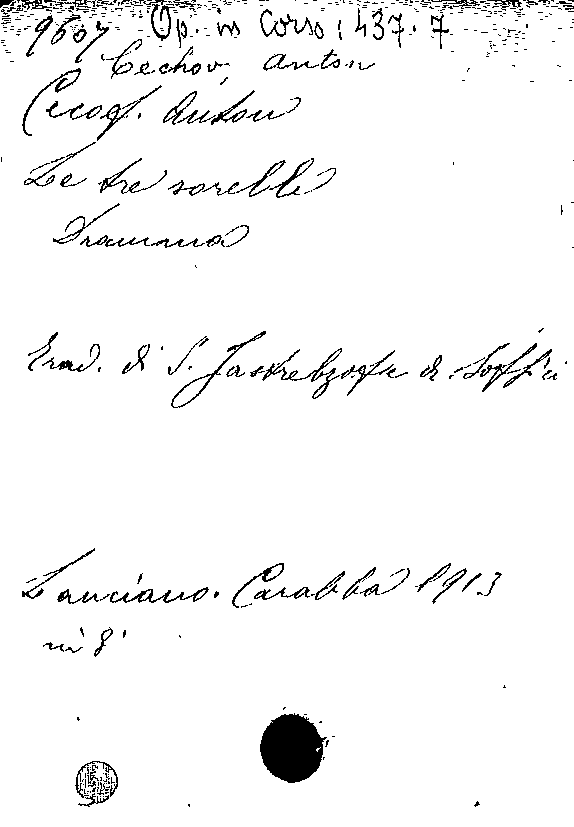 9607 Op. in Corso: 437.7
Cechov, Anton
Cecof. Anton
Le tre sorelle
Dramma
Trad. di S. Jastrebzof e di Soffici
Lanciano. Carabba 1913
in 8°